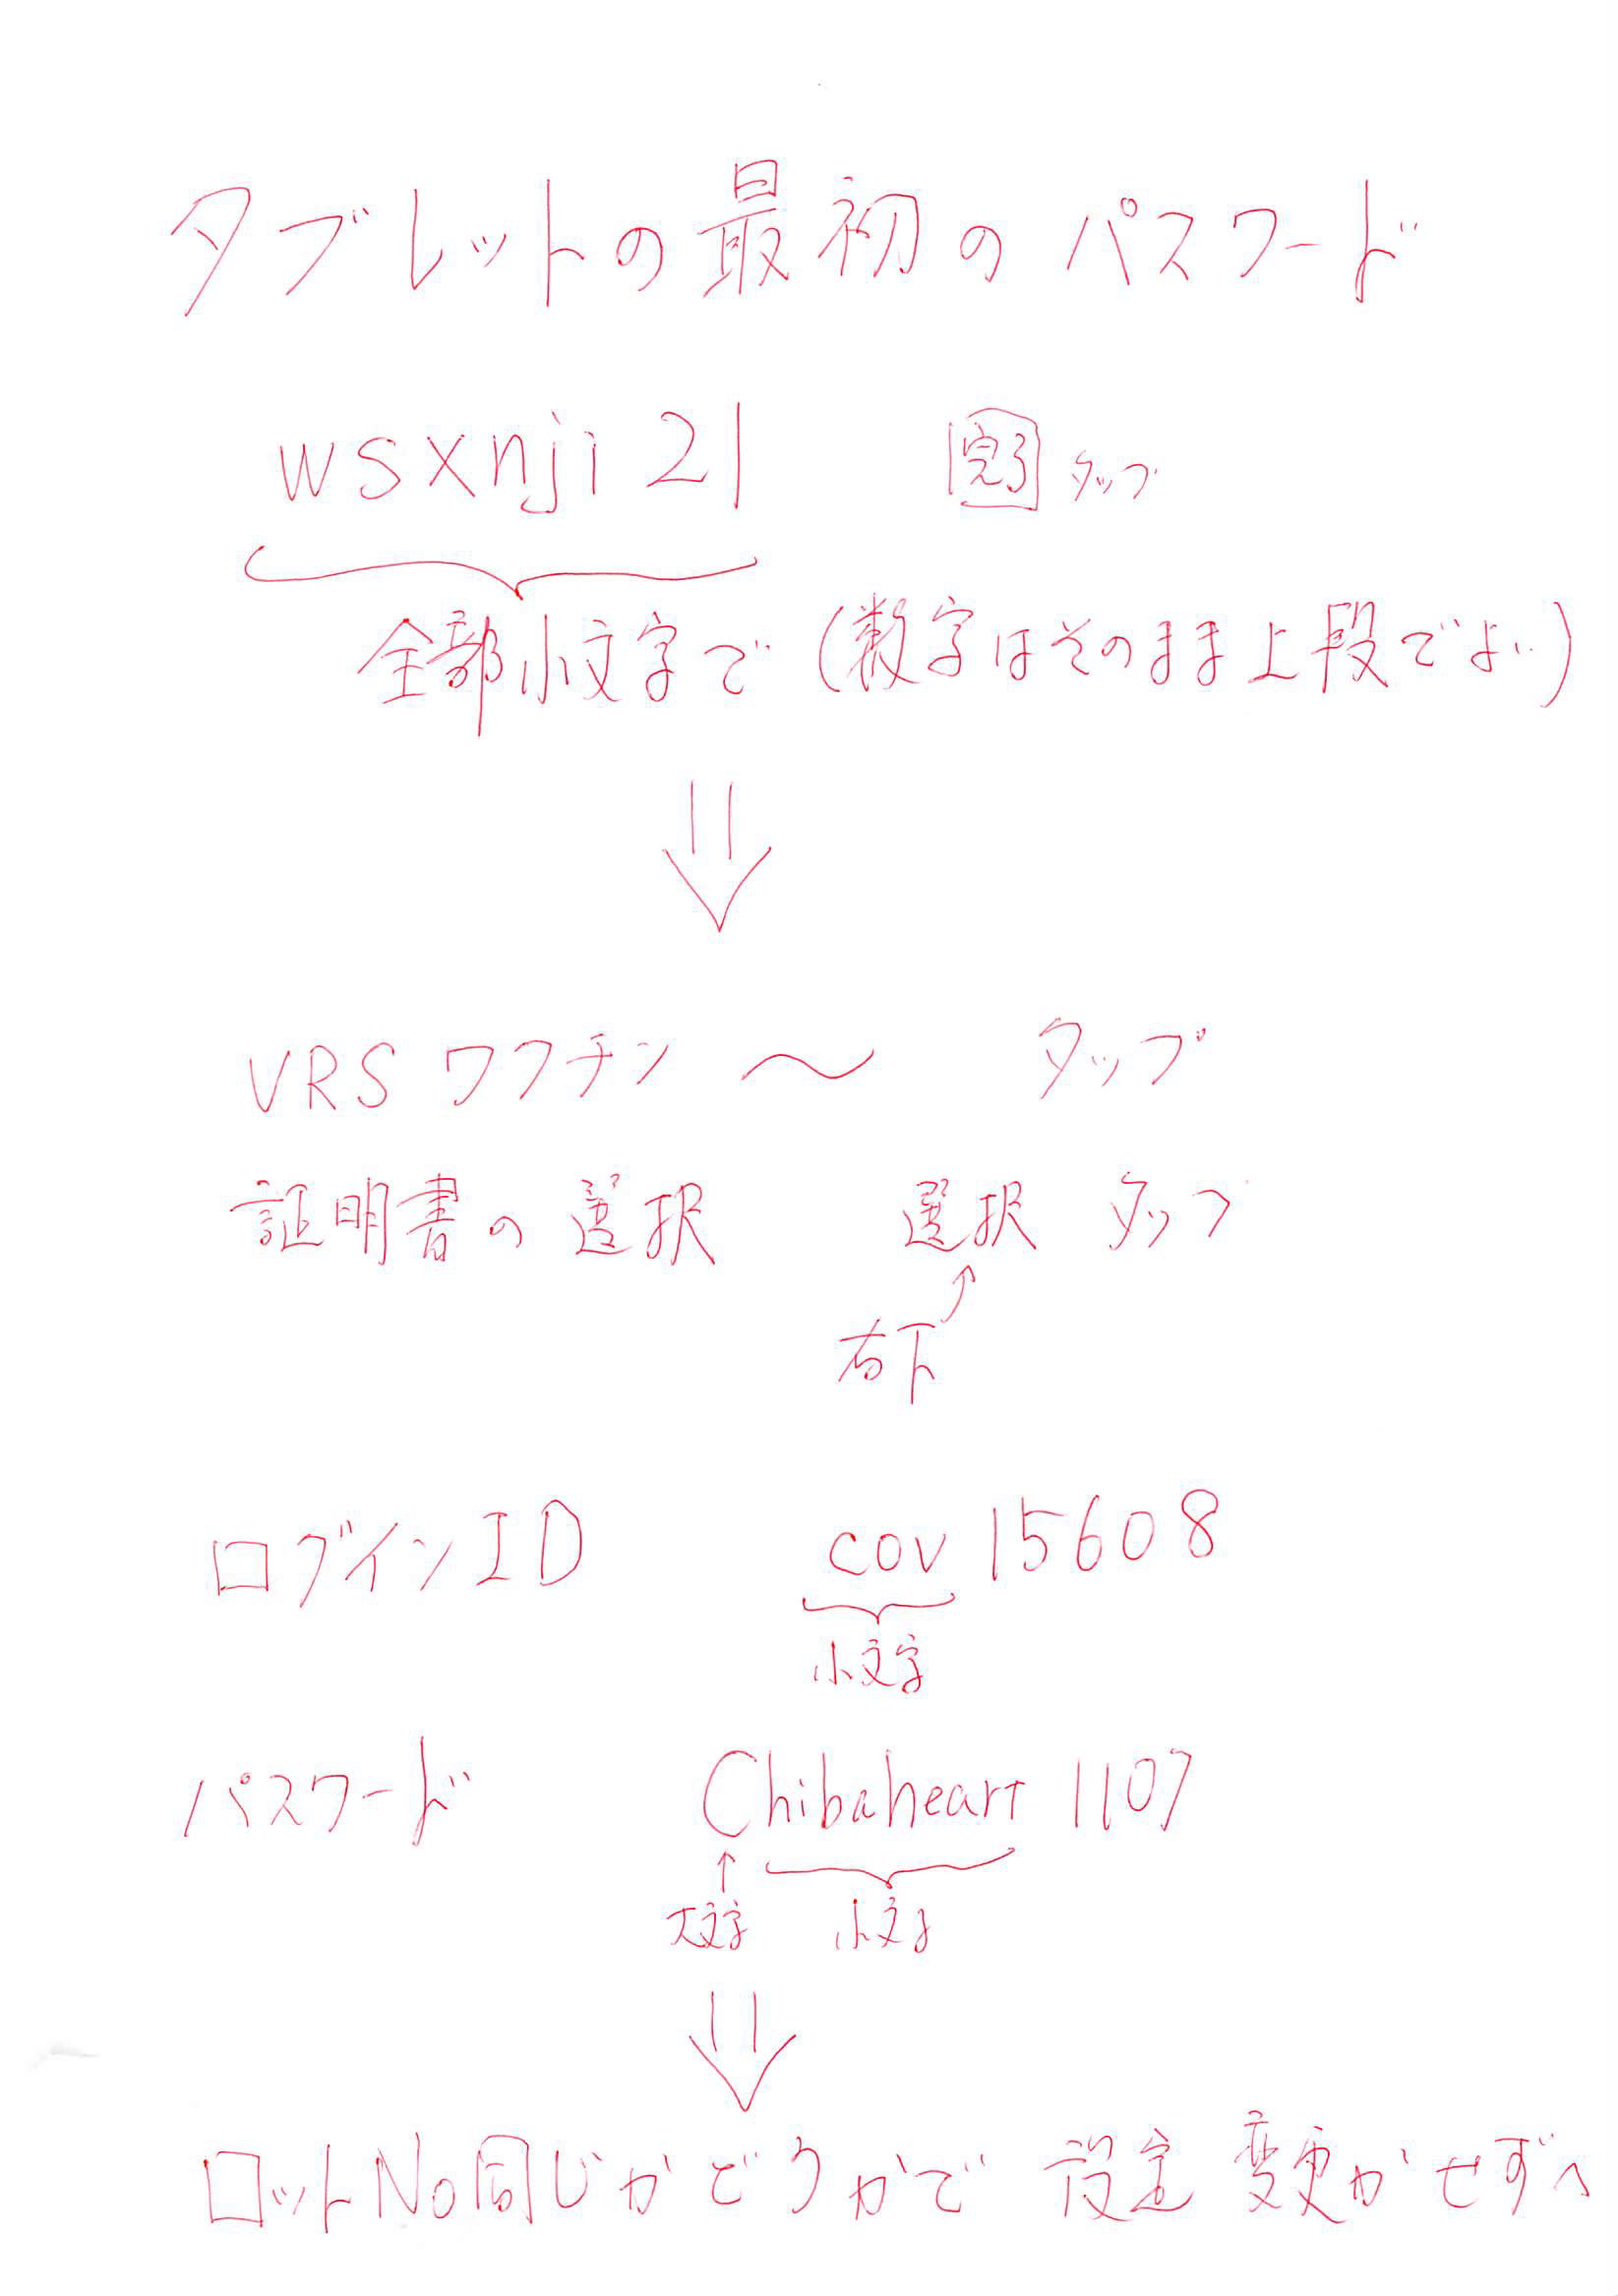 タブレットの最初のパスワード
wsxnji 21 完了 タップ
全部小文字で (数字はそのまま上段でよい)
VRS ワクチン ～ タップ
証明書の選択 選択 タップ
右下
ログインID cov 15608
小文字
パスワード Chibaheart 1107
大文字 小文字
ロットNo同じかどうかで 設定 変更かせずへ